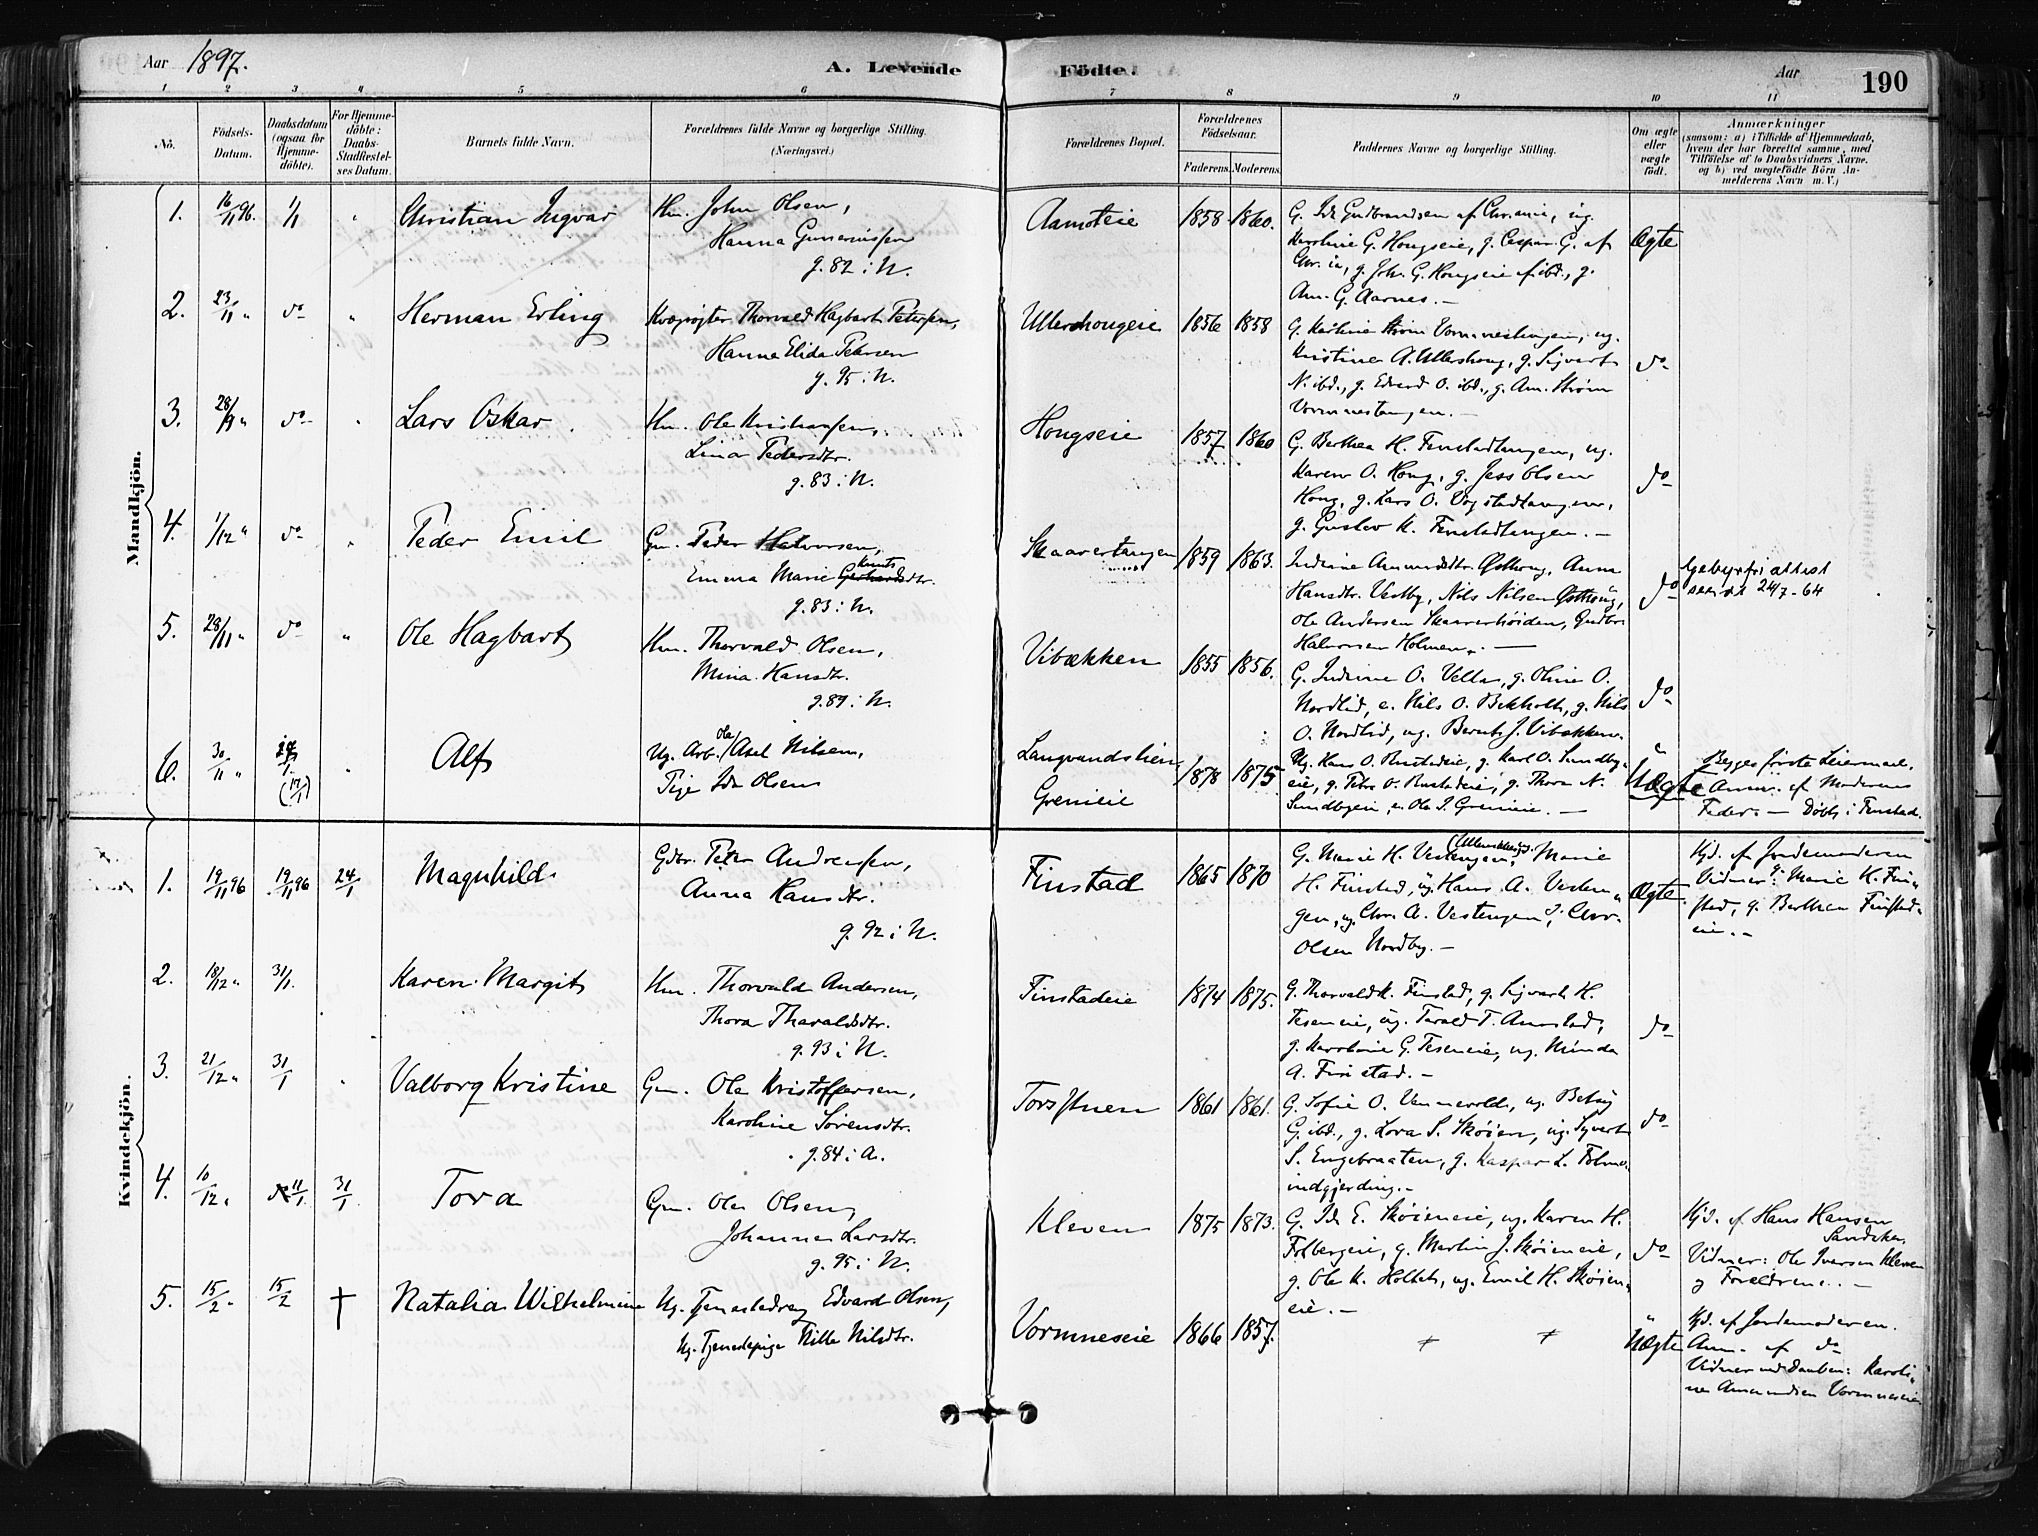 Aar 1897.
A. Levende
Födte.
Aar
190
1 2 3 4 5 6 7 8 9 10 11
No.
Födsels-
Datum.
Daabsdatum
(ogsaa for
Hjemme-
döbte).
For Hjemme-
döbte:
Daabs-
Stadfæstel-
ses Datum.
Barnets fulde Navn.
Forældrenes fulde Navne og borgerlige Stilling.
(Næringsvei.)
Forældrenes Bopæl.
Forældrenes
Födselsaar.
Faderens. Moderens.
Faddernes Navne og borgerlige Stilling.
Om ægte
eller
uægte
födt.
Anmærkninger
(saasom: a) i Tilfælde af Hjemmedaab,
hvem der har forrettet samme, med
Tilföielse af to Daabsvidners Navne.
og b) ved uægtefödte Börn An-
melderens Navn m. V.)
Mandkjön.
1. 16/11 96. 1/1 " Christian Ingvar
Hm. John Olsen,
Hanna Guneriussen
g. 82 i N.
Aamoteie 1858 1860.
G. Ida Gudbrandsen af Chr.ania, ug.
Karoline G. Hougseie, g. Caspar G. af
Chr.ia, g. Joh. G. Hougseie af ibd., g.
Am. G. Aarnes.
Ægte
2. 23/11 " do " Herman Erling
Kvægrøgter Thorvald Hagbart Petersen,
Hanna Elida Petersen
g. 95 i N.
Ullershougeie 1856 1858
G. Kathrine Strøm Vormnestangen, ug.
Kristine A. Ullershoug, g. Sigvart
N. ibd., g. Edvard O. ibd., g. Am. Strøm
Vormnestangen.
do
3. 28/9 " do " Lars Oskar
Hm. Ole Kristiansen,
Lina Pedersdtr.
g. 83 i N.
Hougseie 1857 1860
G. Berthea H. Fenstadtangen, ug.
Karen O. Houg, g. Jess Olsen
Houg, g. Lars O. Vogstadtangen,
g. Gustav K. Fenstadtangen.
do
4. 1/12 " do " Peder Emil
Gm. Peder Halvorsen,
Knuts
Emma Marie Gerhardsdtr.
g. 83 i N.
Skaarertangen 1859 1863.
Indiane Amundsdtr. Østhoug, Anna
Hansdtr. Vestby, Nils Nilsen Østhoug,
Ole Andersen Skaarerhøiden, Gudbr.
Halvorsen Holmen.
do
Gebyrfri attest
24/7-64
5. 28/11 " do " Ole Hagbart
Hm. Thorvald Olsen,
Mina Hansdtr.
g. 89 i N.
Vibækken 1855 1856.
G. Indiane O. Vella, g. Oline O.
Nordlid, e. Nils O. Bekholt, g. Nils
O. Nordlid, ug. Bernt J. Vibækken.
do
6. 30/11 " 24/1. (17/1) " Alf
Ug. Arb. Ole Axel Nilsen,
Pige Ida Olsen
Langvandslien
Grenieie
1878 1875
Ug. Hans O. Rustadeie, g. Karl O. Sundby-
eie, g. Petra O. Rustadeie, g. Thora N.
Sundbyeie, e. Ole S. Grenieie.
Uægte
Begges første Leiermaal.
Anm. af Moderens
Fader. — Døbt i Fenstad.
Kvindekjön.
1. 19/11 96 19/11 96 24/1 Magnhild
Gdbr. Peter Andreassen,
Anna Hansdtr.
g. 92 i N.
Finstad 1865 1870
G. Marie H. Vestengen, Marie
H. Finstad, ug. Hans A. Vesten-
gen, ug. Chr. A. Vestengen, Chr.
Olsen Nordby.
Ægte
Hjd. af Jordemoderen
Vidner: Marie H. Fin-
stad, g. Berthea Finstad-
eie.
2. 18/12 " 31/1. " Karen Margit
Hm. Thorvald Andersen,
Thora Tharaldsdtr.
g. 93 i N.
Finstadeie 1874 1875.
G. Thorvald K. Finstad, g. Sigvart H.
Teseneie, ug. Tarald T. Aamstad,
g. Karoline G. Teseneie, ug. Minda
A. Finstad.
do
3. 21/12 " 31/1 " Valborg Kristine
Gm. Ole Kristoffersen,
Karoline Sørensdtr.
g. 84 i A.
Torsstuen 1861 1861.
G. Sofie O. Vennevold, ug. Betsy
G. ibd., g. Lora S. Skøien, ug. Syvert
S. Engebraaten, g. Kaspar L. Folmo-
indgjerding.
do
4. 10/12 " 11/1. 31/1 Tora
Gm. Ole Olsen,
Johanne Larsdtr.
g. 95 i N.
Kleven 1875 1873.
G. Ida E. Skøieneie, ug. Karen H.
Folbergeie, g. Martin J. Skøieneie,
g. Ole K. Holtet, ug. Emil H. Skøien-
eie.
do
Hjd. af Hans Hansen
Sandaker
Vidner: Ole Iversen Kleven
og Forældrene.
5. 15/2 " 15/2 † Natalia Wilhelmine
Ug. Tjenestedreng Edvard Olsen,
Ug. Tjenestepige Nille Nilsdtr.
Vormneseie 1866 1857.
Uægte
Hjd. af Jordemoderen.
Anm. af do
Vidner ved Daaben: Karoli-
ne Amundsen Vormneseie